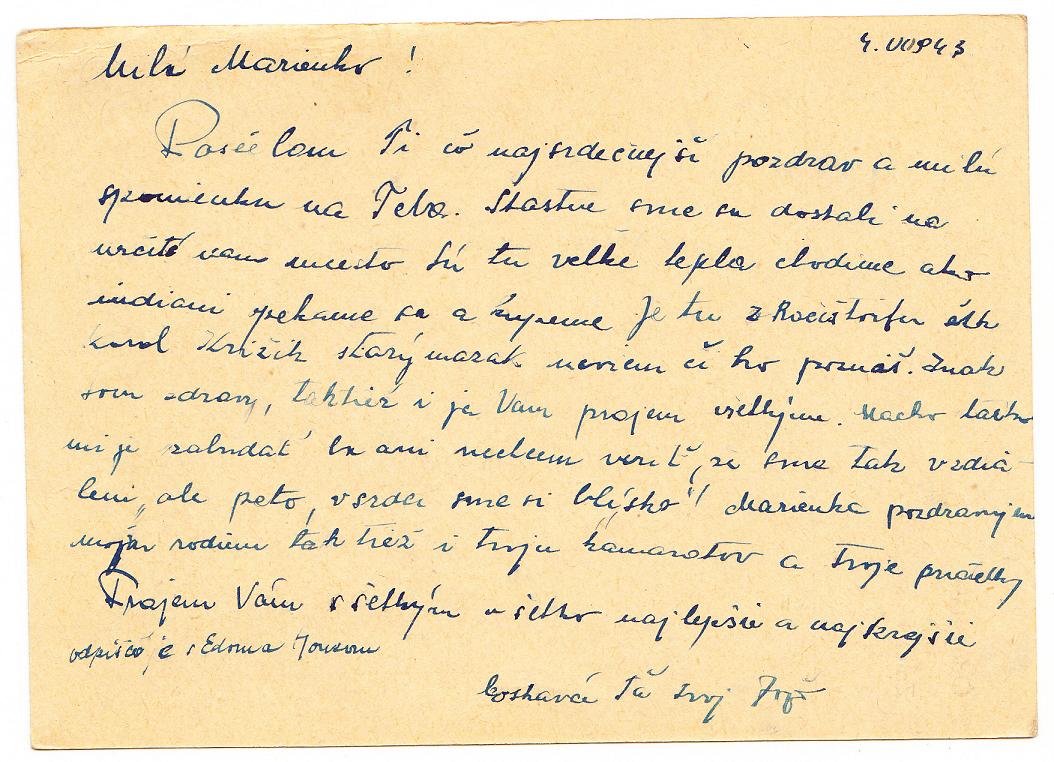 4. VIII 943
Milá Marienko !
Posielam Ti čo najsrdečnejší pozdrav a milú
spomienku na Teba. Štastne sme sa dostali na
určité nam miesto Sú tu velké tepla chodime ako
indiani pekame sa a kupeme Je tu z
Karol Križik starý mazak neviem či ho poznáš. Inak
som zdravy, taktiež i ja Vam prajem všetkým. tažko
mi je zabudať ani nechcem veriť, že sme tak vzdia-
leni, ale "v srdci sme si blízko"! Marienka pozdravujem
rodicu tak tiež i tvoju kamaratov a tvoje priatelky
Prajem Vám všetkým všetko najlepšie a najkrajšie
odpíš čo je s Edom a
Tvoj